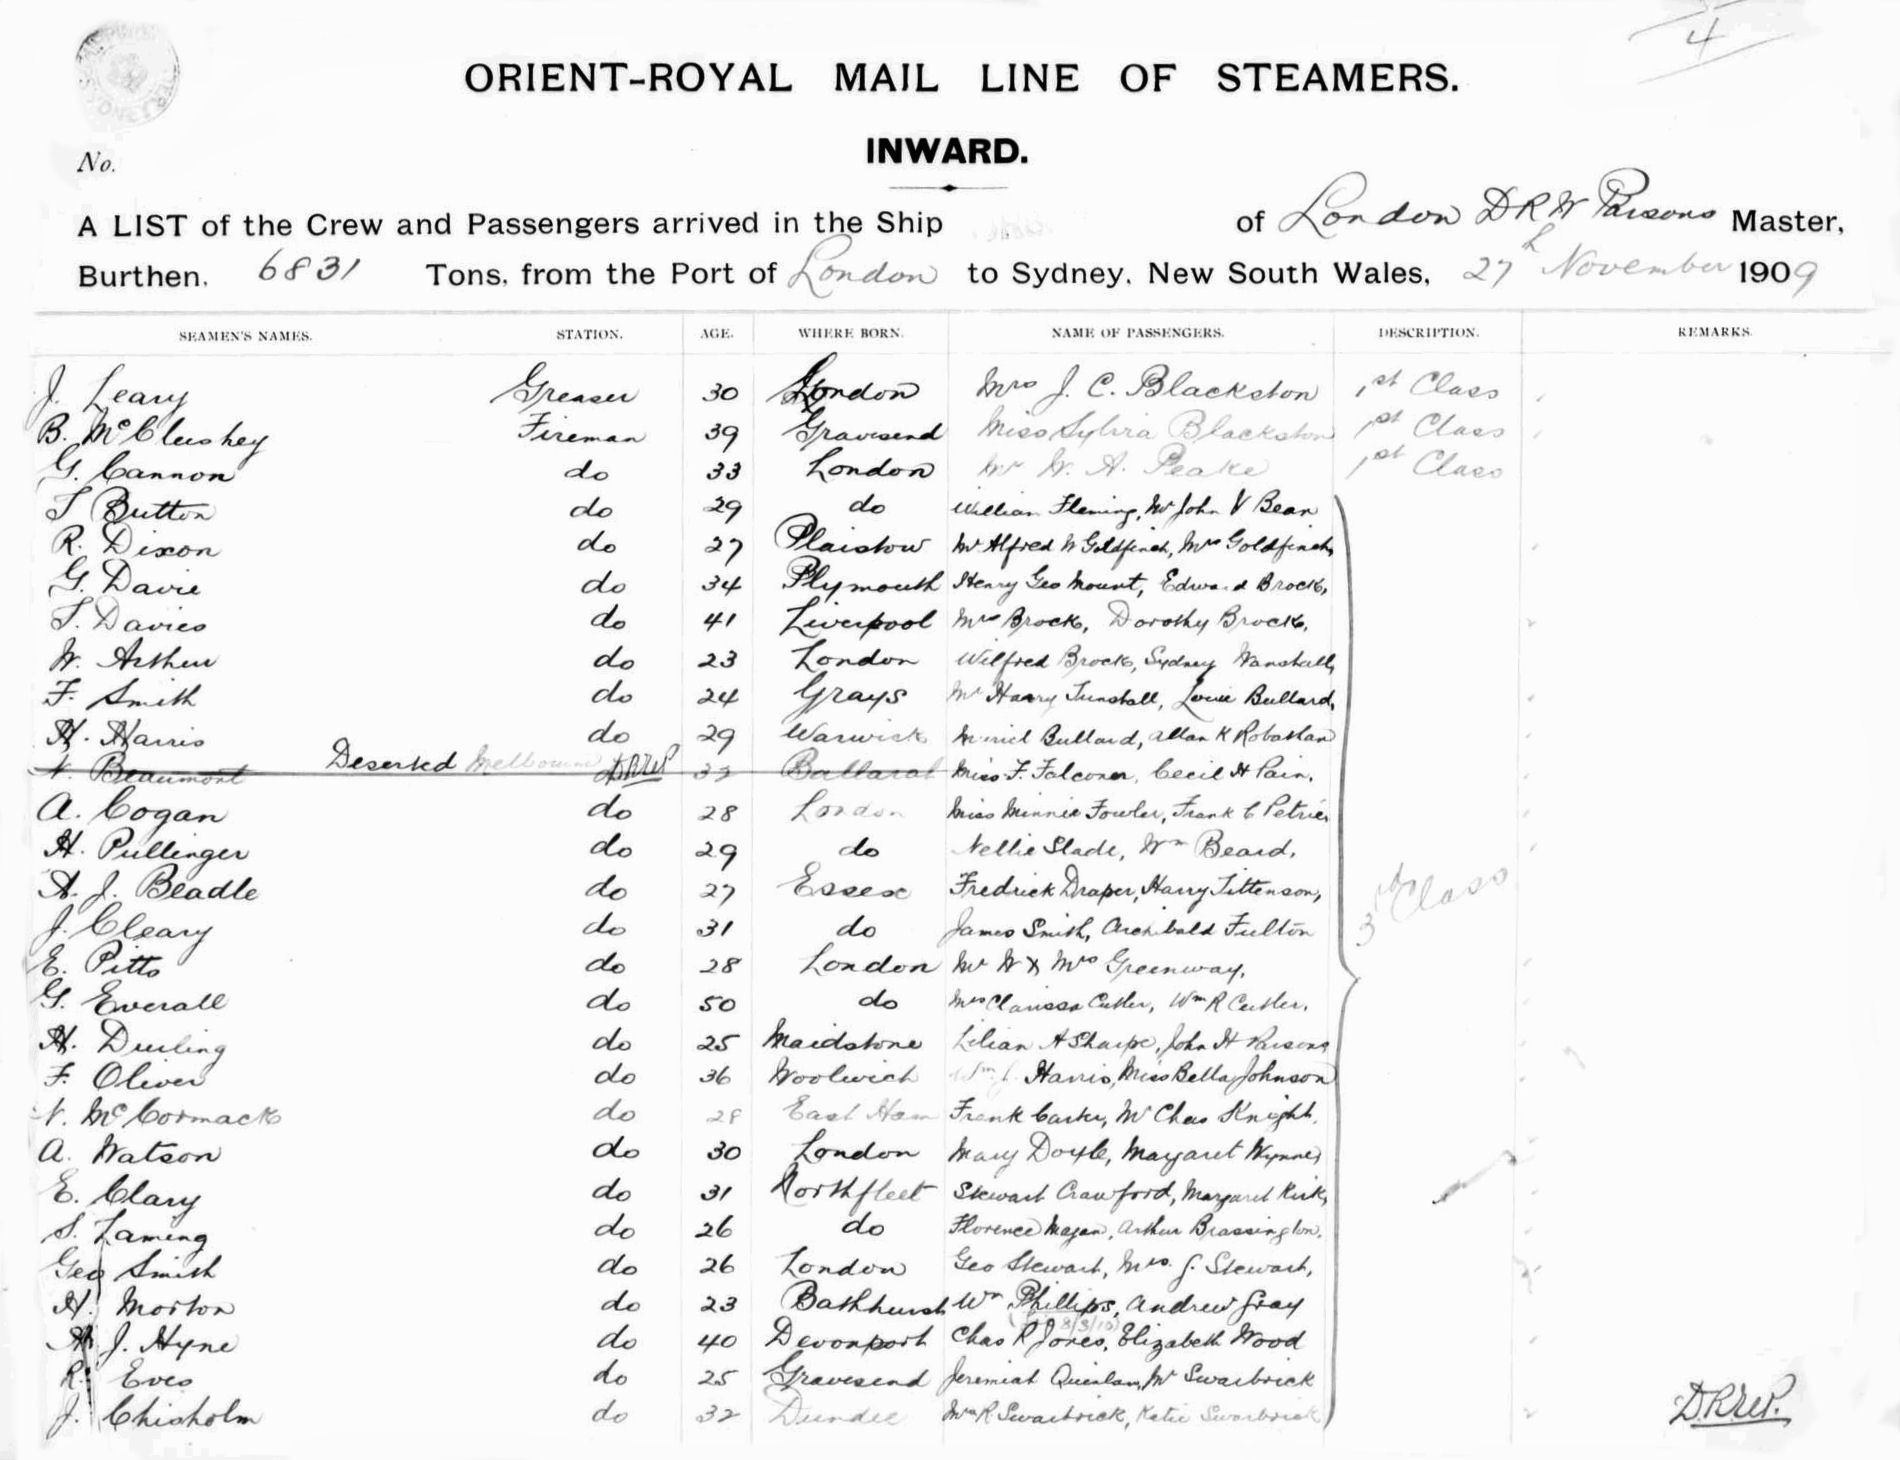 4
ORIENT-ROYAL MAIL LINE OF STEAMERS.
INWARD.
No.
A LIST of the Crew and Passengers arrived in the Ship of London D R W Parsons Master,
Burthen, 6831 Tons, from the Port of London to Sydney, New South Wales, 27th November 1909
SEAMEN'S NAMES. STATION. AGE. WHERE BORN. NAME OF PASSENGERS. DESCRIPTION. REMARKS.
J. Leary Greaser 30 London Mrs J. C. Blackston 1st Class
B. McCluskey Fireman 39 Gravesend Miss Sylvia Blackston 1st Class
G. Cannon do 33 London Mr W. A. Peake 1st Class
T Button do 29 do William Fleming, Mr John V Bean
R. Dixon do 27 Plaistow Mr Alfred W Goldfinch, Mrs Goldfinch,
G. Davie do 34 Plymouth Henry Geo Mount, Edward Brock,
T. Davies do 41 Liverpool Mrs Brock, Dorothy Brock,
W. Arthur do 23 London Wilfred Brock, Sydney Wanshall,
F. Smith do 24 Grays Mr Harry Tunstall, Louie Bullard,
H. Harris do 29 Warwick Muriel Bullard, Allan K Robathan
N. Beaumont Deserted Melbourne DRWP 32 Ballarat Miss F. Falconer, Cecil H Pain,
A. Cogan do 28 London Miss Minnie Fowler, Frank C Petrie,
H. Pullinger do 29 do Nellie Slade, Wm Beard,
A. J. Beadle do 27 Essex Fredrick Draper, Harry Tittenson,
3rd Class
J. Cleary do 31 do James Smith, Archibald Fulton
E. Pitts do 28 London Mr W & Mrs Greenway,
G. Everall do 50 do Mrs Clarissa Cutler, Wm R Cutler,
H. Durling do 25 Maidstone Lilian A Sharpe, John H Parsons
F. Oliver do 36 Woolwich Wm J. Harris, Miss Bella Johnson
N. McCormack do 28 East Ham Frank Carter, Mr Chas Knight,
A. Watson do 30 London Mary Doyle, Margaret Wynne,
E. Clary do 31 Northfleet Stewart Crawford, Margaret Kirk,
S. Laming do 26 do Florence Magan, Arthur Brassington,
Geo Smith do 26 London Geo Stewart, Mrs. G. Stewart,
H. Morton do 23 Bathhurst Wm Phillips, Andrew Gray
8/3/10
A. J. Hyne do 40 Devonport Chas R Jones, Elizabeth Wood
R. Eves do 25 Gravesend Jeremiah Quinlan, Mr Swarbrick
J. Chisholm do 32 Dundee Mrs R Swarbrick, Katie Swarbrick
D.R.W.P.